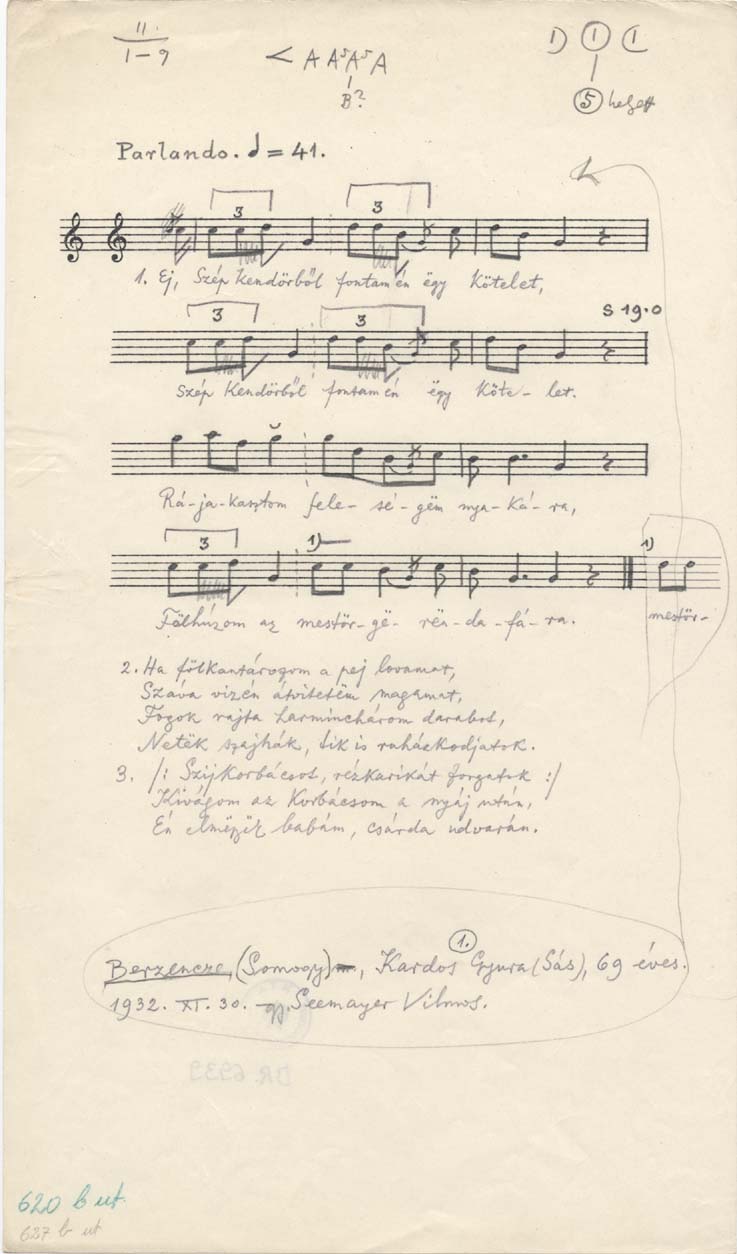 II.
1-9
< A A⁵A⁵A
B?
1) ① (1
⑤ helyett
Parlando. ♩= 41.
3 3
1. Ej, Szép Kendörből fontam én ëgy Kötelet,
3 3 S 19.0
Szép Kendörből fontam én ëgy Köte-let.
Rá-ja-kasztom fele-sé-gëm nya-ká-ra,
3 1) 1)
Fölhúzom az mestör-gë-rën-da-fá-ra. mestör-
2. Ha fölkantározom a pej lovamat,
Száva vizén átvitetëm magamat,
Fogok rajta harminchárom darabot,
Netëk szajhák, tik is ruházkodjatok.
3. /: Szijkorbácsot, rézkarikát forgatok :/
Kivágom az Korbácsom a nyáj után,
Én babám, csárda udvarán.
1.
Berzencze, (Somogy), Kardos Gyura (Sás), 69 éves.
1932. XI. 30. – gy. Seemayer Vilmos.
620 b ut.
627 b ut